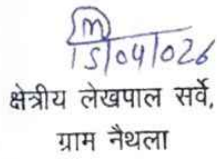 15/04/026
क्षेत्रीय लेखपाल सर्वे,
ग्राम नैथला